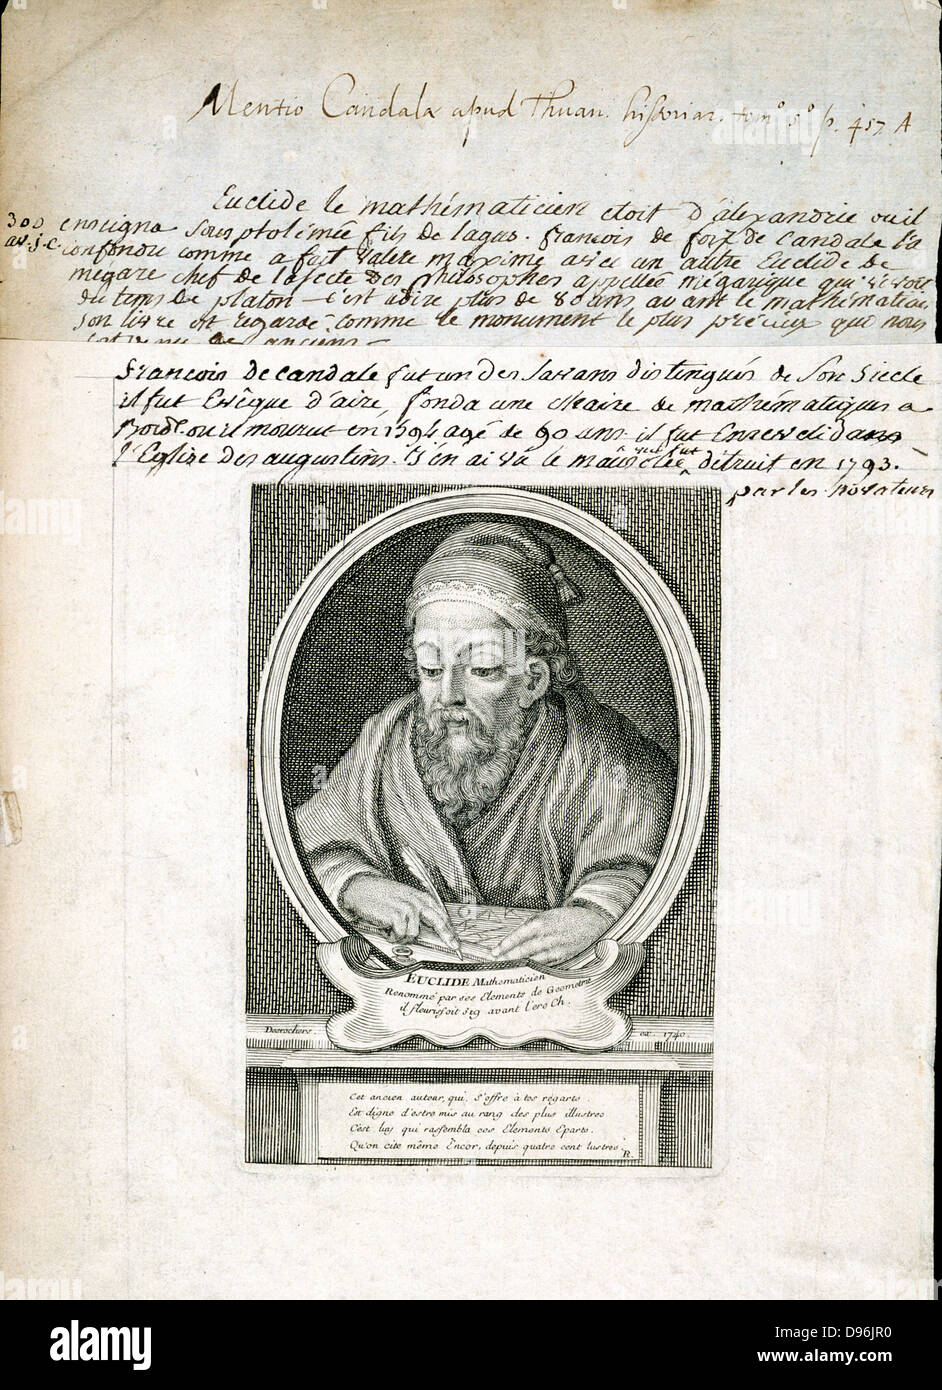 Mentio Candalæ apud Thuan. historiar. tomo 5o p. 457. A
Euclide le mathématicien etoit d'alexandrie ou il
300 enseigna sous ptolimée fils de lagus. françois de foix de Candale l'a
av. j. c. confondu comme a fait valere maxime avec un autre Euclide de
megare chef de la secte des philosophes appellée mégarique qui vivoit
du tems de platon — c'est adire plus de 80 ans avant le mathématicien
son livre est regardé comme le monument le plus précieux que nous
de anciens —
françois de candale fut un des savans distingués de son siecle
il fut Evêque d'aire, fonda une chaire de mathématiques a
Bord. ou il mourut en 1594 agé de 90 ans. il fut Enseveli dans
l'Eglise des augustins. j'en ai vu le mausolée qui fut détruit en 1793.
par les novateurs
EUCLIDE Mathematicien
Renommé par ses Elements de Geometrie
il fleurissoit 319 avant l'ere Ch.
Desrochers. ex. 1740.
Cet ancien auteur, qui s'offre à tes régarts.
Est digne d'estre mis au rang des plus illustres
C'est luy qui rassembla ces Elements Eparts.
Qu'on cite même Encor, depuis quatre cent lustres
R.
alamy
Image ID: D96JR0
www.alamy.com